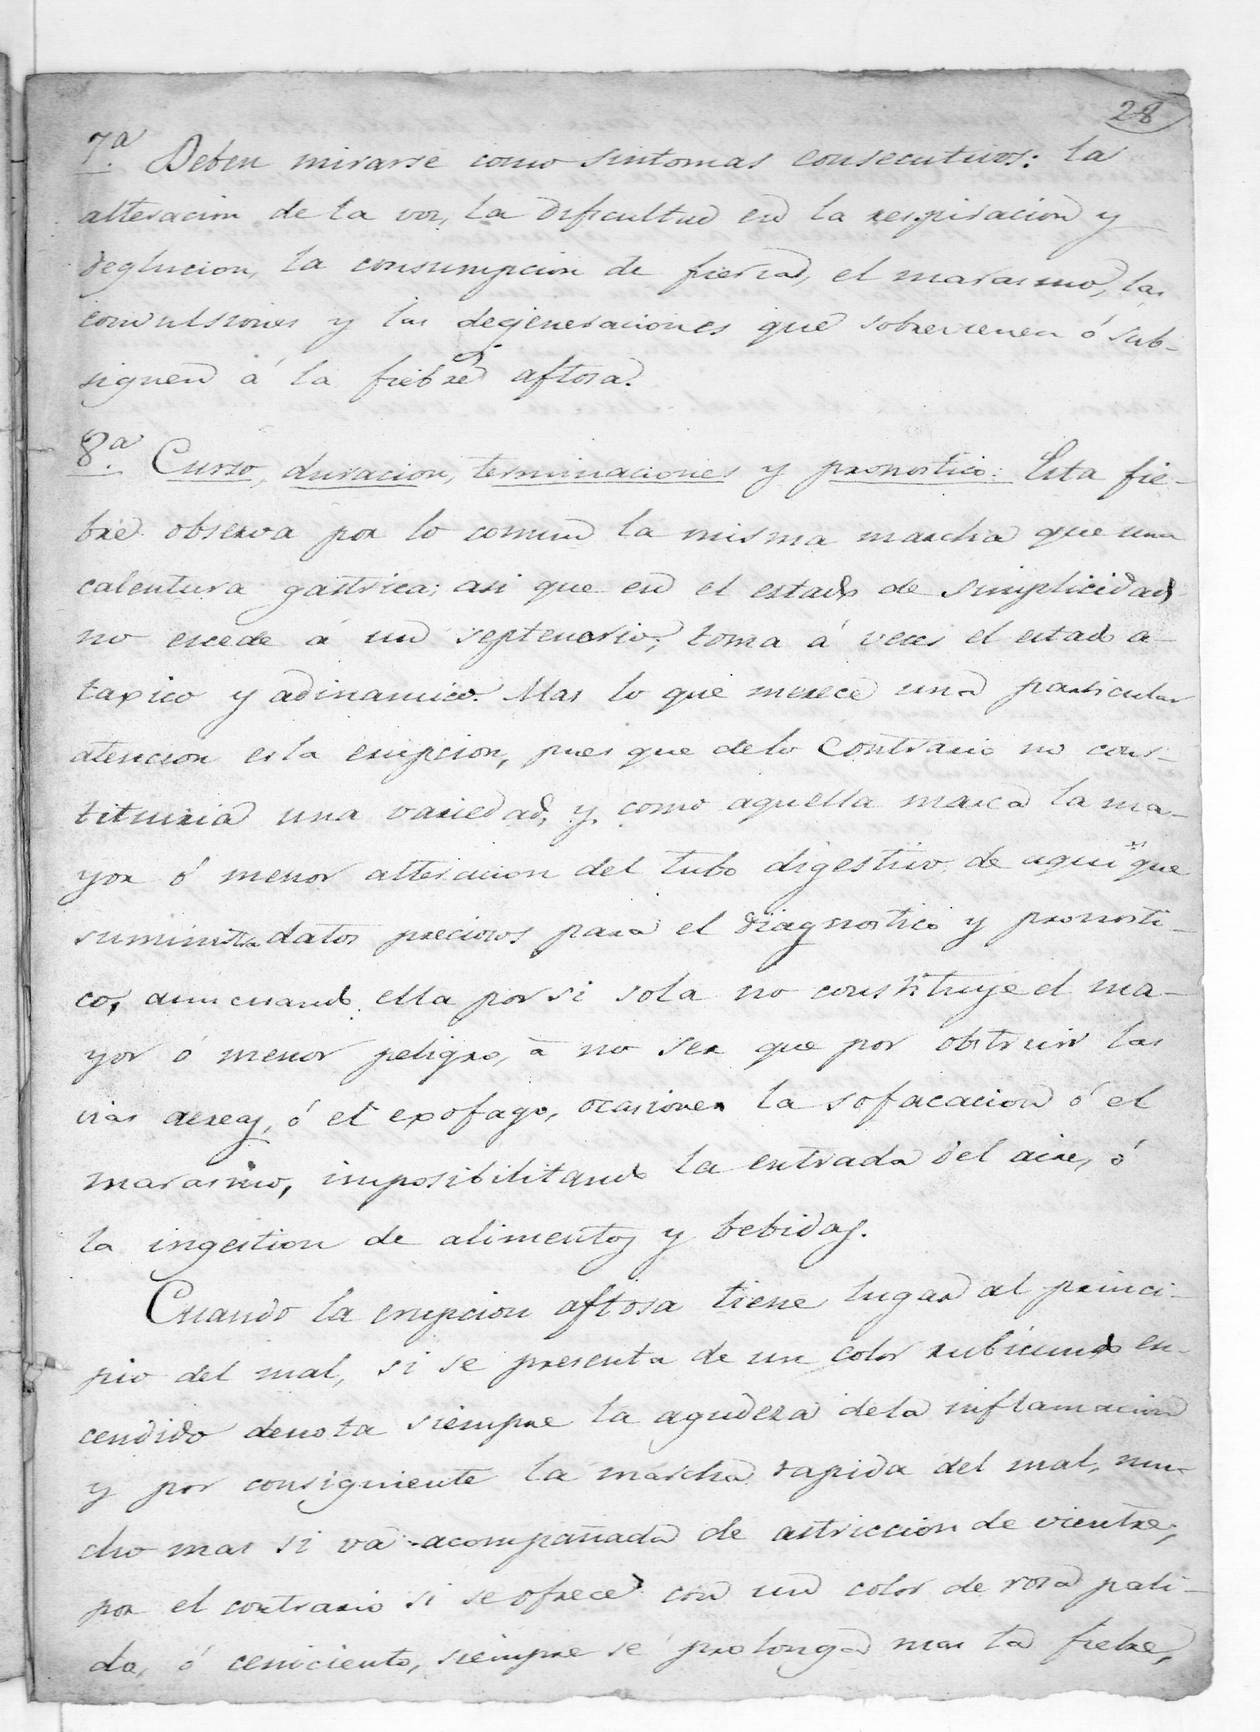 28
7.ª Deben mirarse como sintomas consecutivos: la
alteracion de la voz, la dificultad en la respiracion y
deglucion, la consumpcion de fuerzas, el marasmo, las
convulsiones y las degeneraciones que sobrevienen ó sub-
siguen á la fiebre aftosa.
8.ª Curso, duracion, terminaciones y pronostico: Esta fie-
bre observa por lo comun la misma marcha que una
calentura gastrica; asi que en el estado de simplicidad
no escede á un septenario; toma á veces el estado a-
taxico y adinamico. Mas lo que merece una particular
atencion es la erupcion, pues que delo contrario no cons-
tituiria una variedad, y como aquella marca la ma-
yor ó menor alteracion del tubo digestivo, de aqui que
suministra datos preciosos para el diagnostico y pronosti-
co, aun cuando ella por si sola no constituye el ma-
yor ó menor peligro, á no ser que por obstruir las
vias aereas, ó el exofago, ocasionen la sofacacion ó el
marasmo, imposibilitando la entrada del aire, ó
la ingestion de alimentos y bebidas.
Cuando la erupcion aftosa tiene lugar al princi-
pio del mal, si se presenta de un color rubicundo en-
cendido denota siempre la agudeza dela inflamacion
y por consiguiente la marcha rapida del mal, mu-
cho mas si va acompañada de astriccion de vientre;
por el contrario si se ofrece con un color de rosa pali-
do, ó ceniciento, siempre se prolonga mas la fiebre,